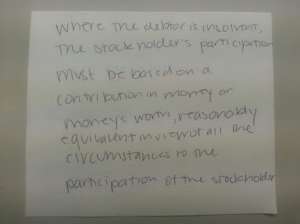 Where the debtor is insolvent,
the stockholder's participation
must be based on a
contribution in money or
money's worth, reasonably
equivalent in view of all the
circumstances to the
participation of the stockholder